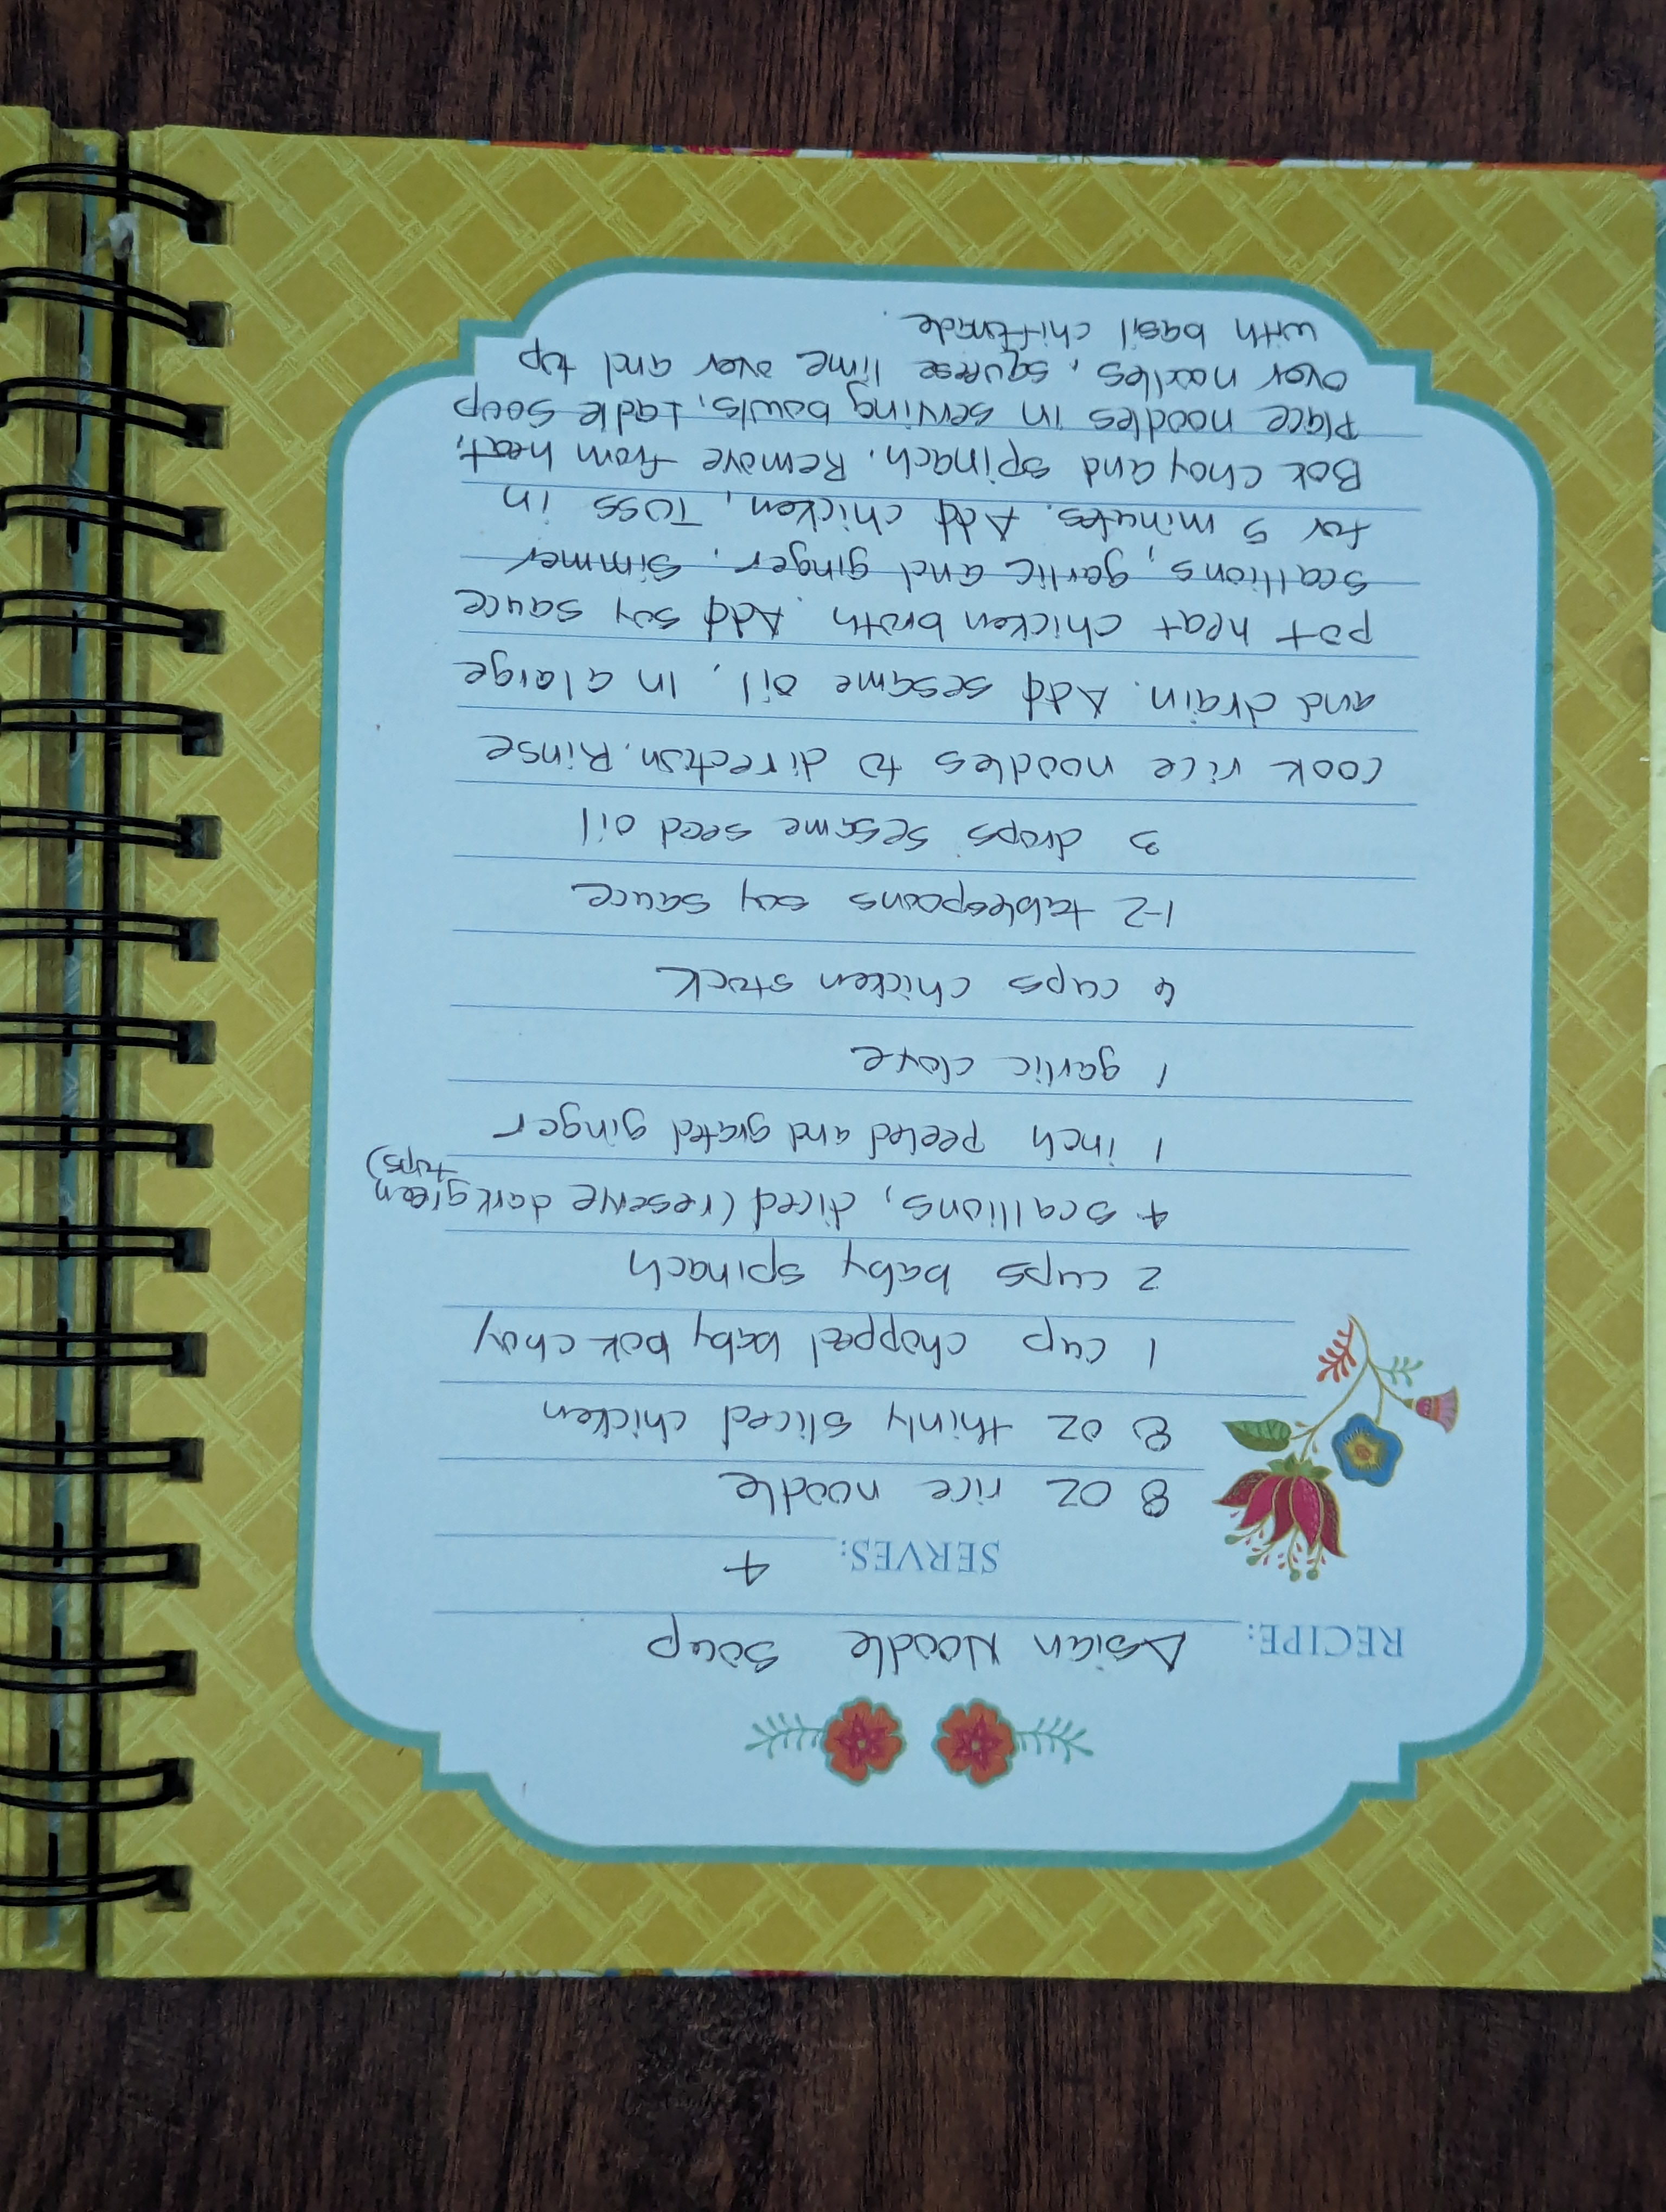 RECIPE: Asian Noodle Soup
SERVES: 4
8 oz rice noodle
8 oz thinly sliced chicken
1 cup chopped baby bok choy
2 cups baby spinach
4 scallions, diced (reserve dark green
tups)
1 inch peeled and grated ginger
1 garlic clove
6 cups chicken stock
1-2 tablespoons soy sauce
3 drops sesame seed oil
cook rice noodles to direction. Rinse
and drain. Add sesame oil, In a large
pot heat chicken broth. Add soy sauce
scallions, garlic and ginger. Simmer
for 5 minutes. Add chicken, Toss in
Bok choy and spinach. Remove from heat,
Place noodles in serving bowls, Ladle soup
over noodles, squeese lime over and top
with basil chiftnade.